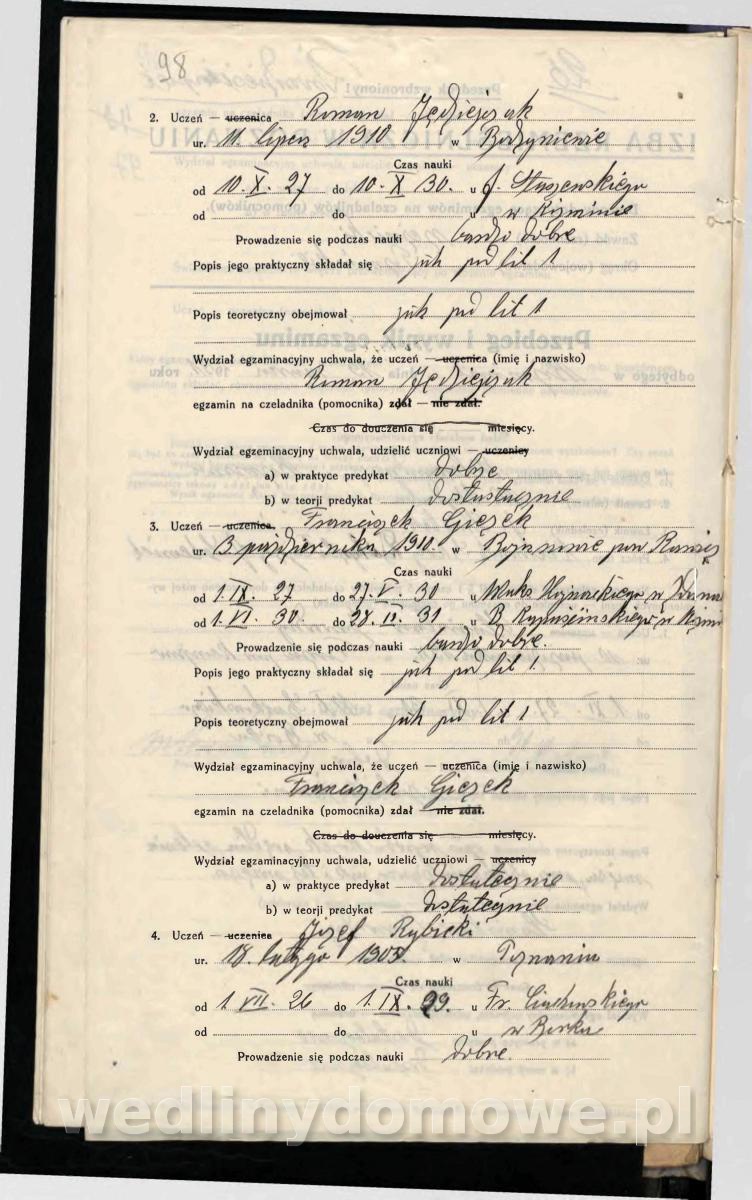 98
2. Uczeń — uczenica Roman Jędrzejczak
ur. 11. lipca 1910 w
Czas nauki
od 10. X. 27 do 10. X 30. u
od do u w Koźminie
Prowadzenie się podczas nauki bardzo dobre
Popis jego praktyczny składał się jak pod lit 1
Popis teoretyczny obejmował jak pod lit 1.
Wydział egzaminacyjny uchwala, że uczeń — uczenica (imię i nazwisko)
Roman Jędrzejczak
egzamin na czeladnika (pomocnika) zdał — nie zdał.
Czas do douczenia się miesięcy.
Wydział egzeminacyjny uchwala, udzielić uczniowi — uczenicy
a) w praktyce predykat dobrze
b) w teorji predykat dostatecznie
3. Uczeń — uczenica. Franciszek
ur. 3 października 1910. w Bojanowie pow
Czas nauki
od 1. IX. 27 do 27. V. 30 u w
od 1. VI. 30. do 28. 31 u B. w
Prowadzenie się podczas nauki bardzo dobre.
Popis jego praktyczny składał się jak pod lit 1.
Popis teoretyczny obejmował jak pod lit 1
Wydział egzaminacyjny uchwala, że uczeń — uczenica (imię i nazwisko)
Franciszek
egzamin na czeladnika (pomocnika) zdał — nie zdał.
Czas do douczenia się miesięcy.
Wydział egzaminacyjnny uchwala, udzielić uczniowi — uczenicy
a) w praktyce predykat dostatecznie
b) w teorji predykat dostatecznie
4. Uczeń — uczenica Józef Rybicki
ur. 18. lutego w Poznaniu
Czas nauki
od 1. VII. 26 do 1. IX. 29. u Fr.
od do u w Borku
Prowadzenie się podczas nauki dobre.
wedlinydomowe.pl